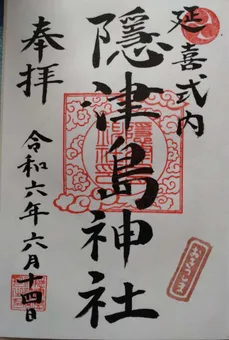 延喜式内
隠津島神社
奉拝
令和六年六月十四日